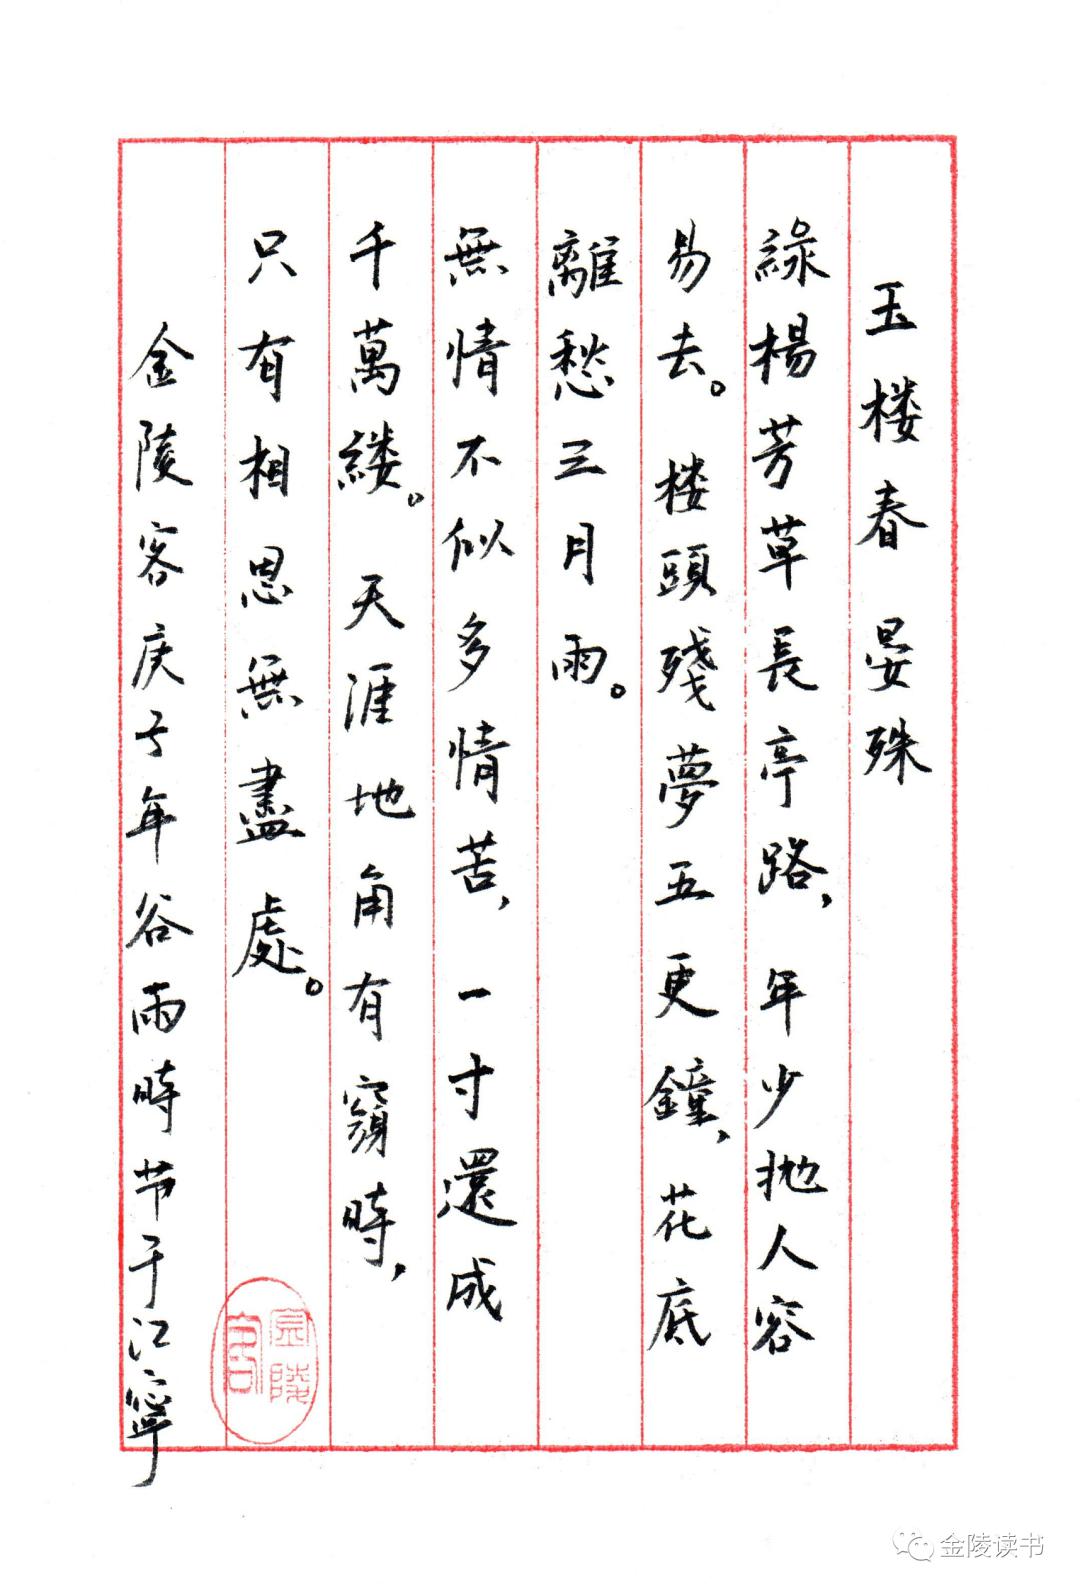 玉楼春 晏殊
綠楊芳草長亭路，年少抛人容
易去。楼頭殘夢五更鐘，花底
離愁三月雨。
無情不似多情苦，一寸還成
千萬縷。天涯地角有窮時，
只有相思無盡處。
金陵客庚子年谷雨時节于江寧
金陵客
金陵读书